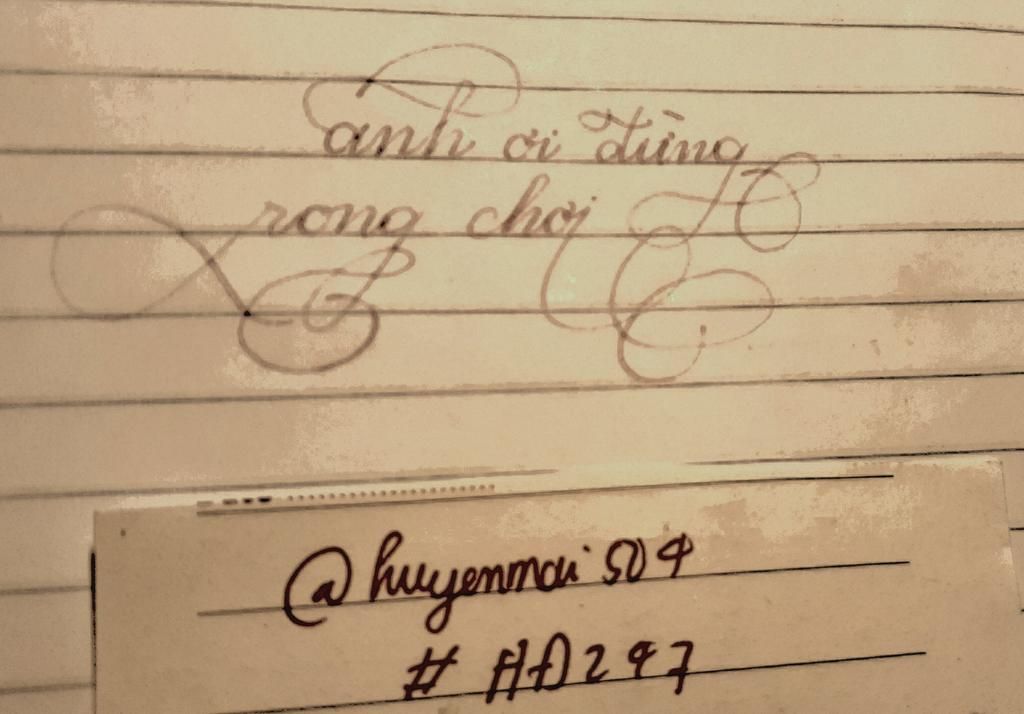 anh ơi đừng
rong chơi
@huyenmai504
#HĐ247